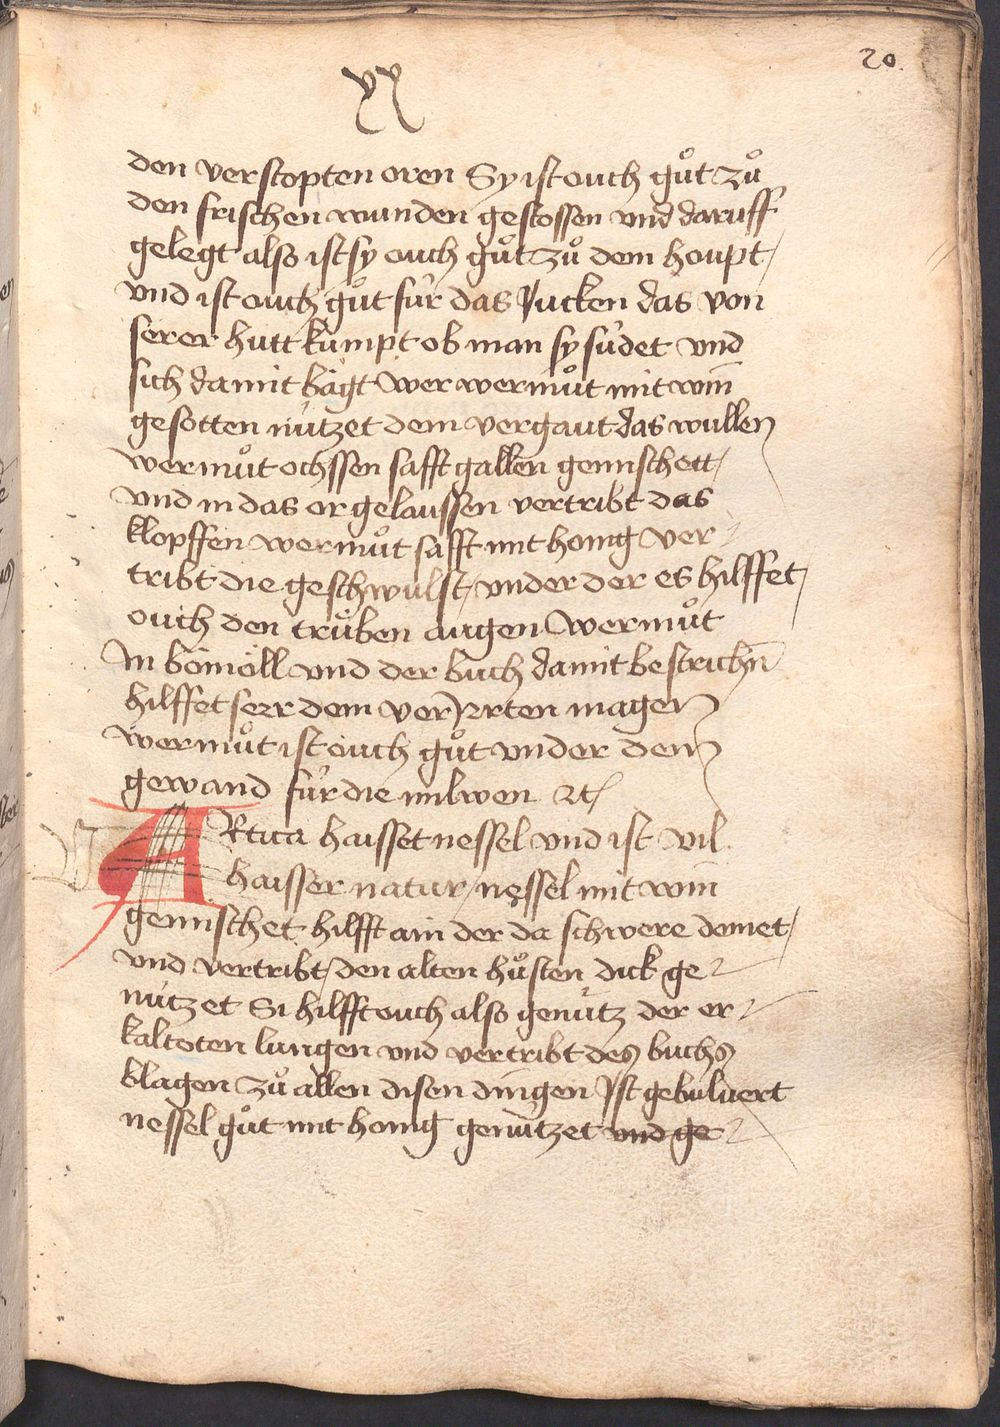 20.
xx
den verstopten oren Sy ist ouch gůt zů
den frischen wunden gestossen vnd daruff
gelegt also ist sy ouch gůt zů dem houpt /
vnd ist ouch gůt für das Jucken das von
serer hutt kumpt ob man sy südet vnd
sich damit bägt wer wermůt mit win
gesotten nützet dem vergaut das wullen
wermůt ochssen safft gallen gemischett /
vnd in das or gelaussen vertribt das
klopffen wermůt safft mit honig ver
tribt die geschwulst / vnder der es hilffet /
ouch den trůben augen wermůt
In bömöll vnd der buch damit bestrichn̄
hilffet serr dem magen
wermůt ist ouch gůt vnder dem
gewand für die milwen ꝛc
ARtica haisset nessel vnd ist vil
haisser natur / nessel mit win
gemischet hilfft ain der da schwere demet /
vnd vertribt / den alten hůsten dick ge
nützet Si hilfft ouch also genütz der er
kalteten lungen vnd vertribt des buchs
klagen zů allen disen dingen Jst gebuluert
nessel gůt mit honig genützet vnd ge